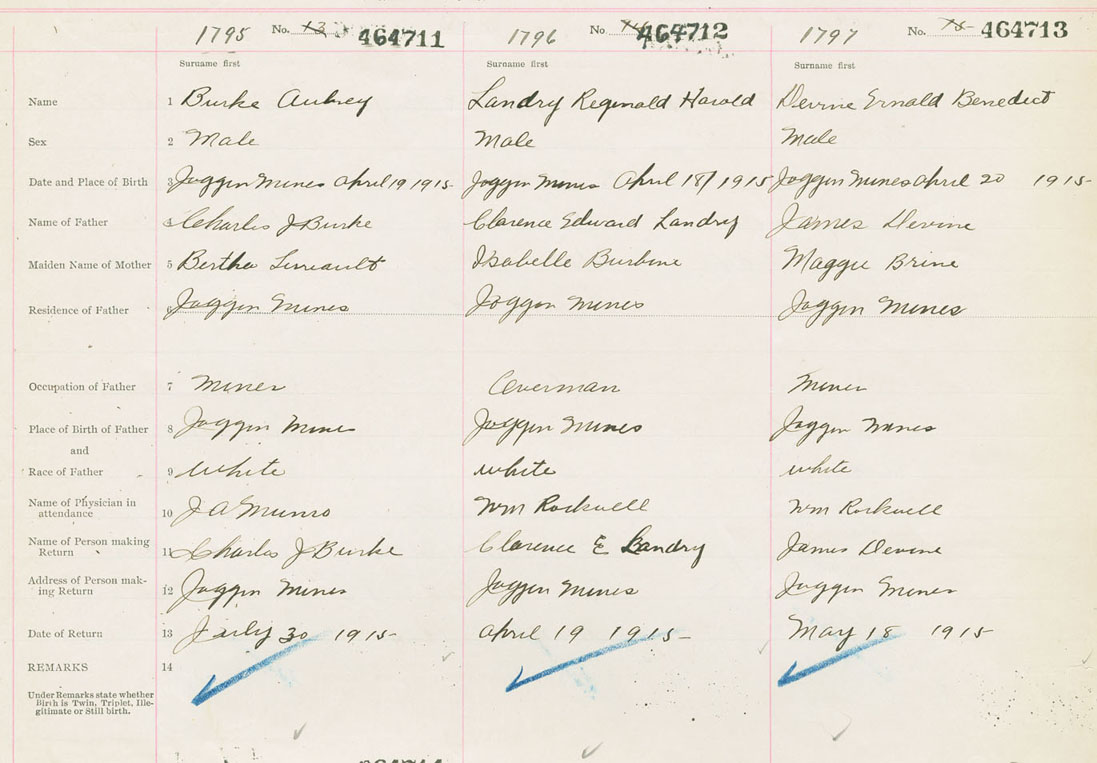 1795 No. 13 464711 1796 No 14 464712 1797 No. 15 464713
Surname first Surname first Surname first
Name 1 Burke Aubrey Landry Reginald Harold Devine Ernald Benedict
Sex 2 Male Male Male
Date and Place of Birth 3 Joggin Mines April 19 1915 Joggin Mines April 18/1915 Joggin Mines April 20 1915
Name of Father 4 Charles J Burke Clarence Edward Landry James Devine
Maiden Name of Mother 5 Bertha Isabelle Burbine Maggie Brine
Residence of Father 6 Joggin Mines Joggin Mines Joggin Mines
Occupation of Father 7 Miner Overman Miner
Place of Birth of Father 8 Joggin Mines Joggin Mines Joggin Mines
and
Race of Father 9 White white white
Name of Physician in
attendance 10 J A Munro Wm Rockwell Wm Rockwell
Name of Person making
Return 11 Charles J Burke Clarence E Landry James Devine
Address of Person mak-
ing Return 12 Joggin Mines Joggin Mines Joggin Mines
Date of Return 13 July 30 1915 April 19 1915 May 18 1915
REMARKS 14
Under Remarks state whether
Birth is Twin, Triplet, Ille-
gitimate or Still birth.